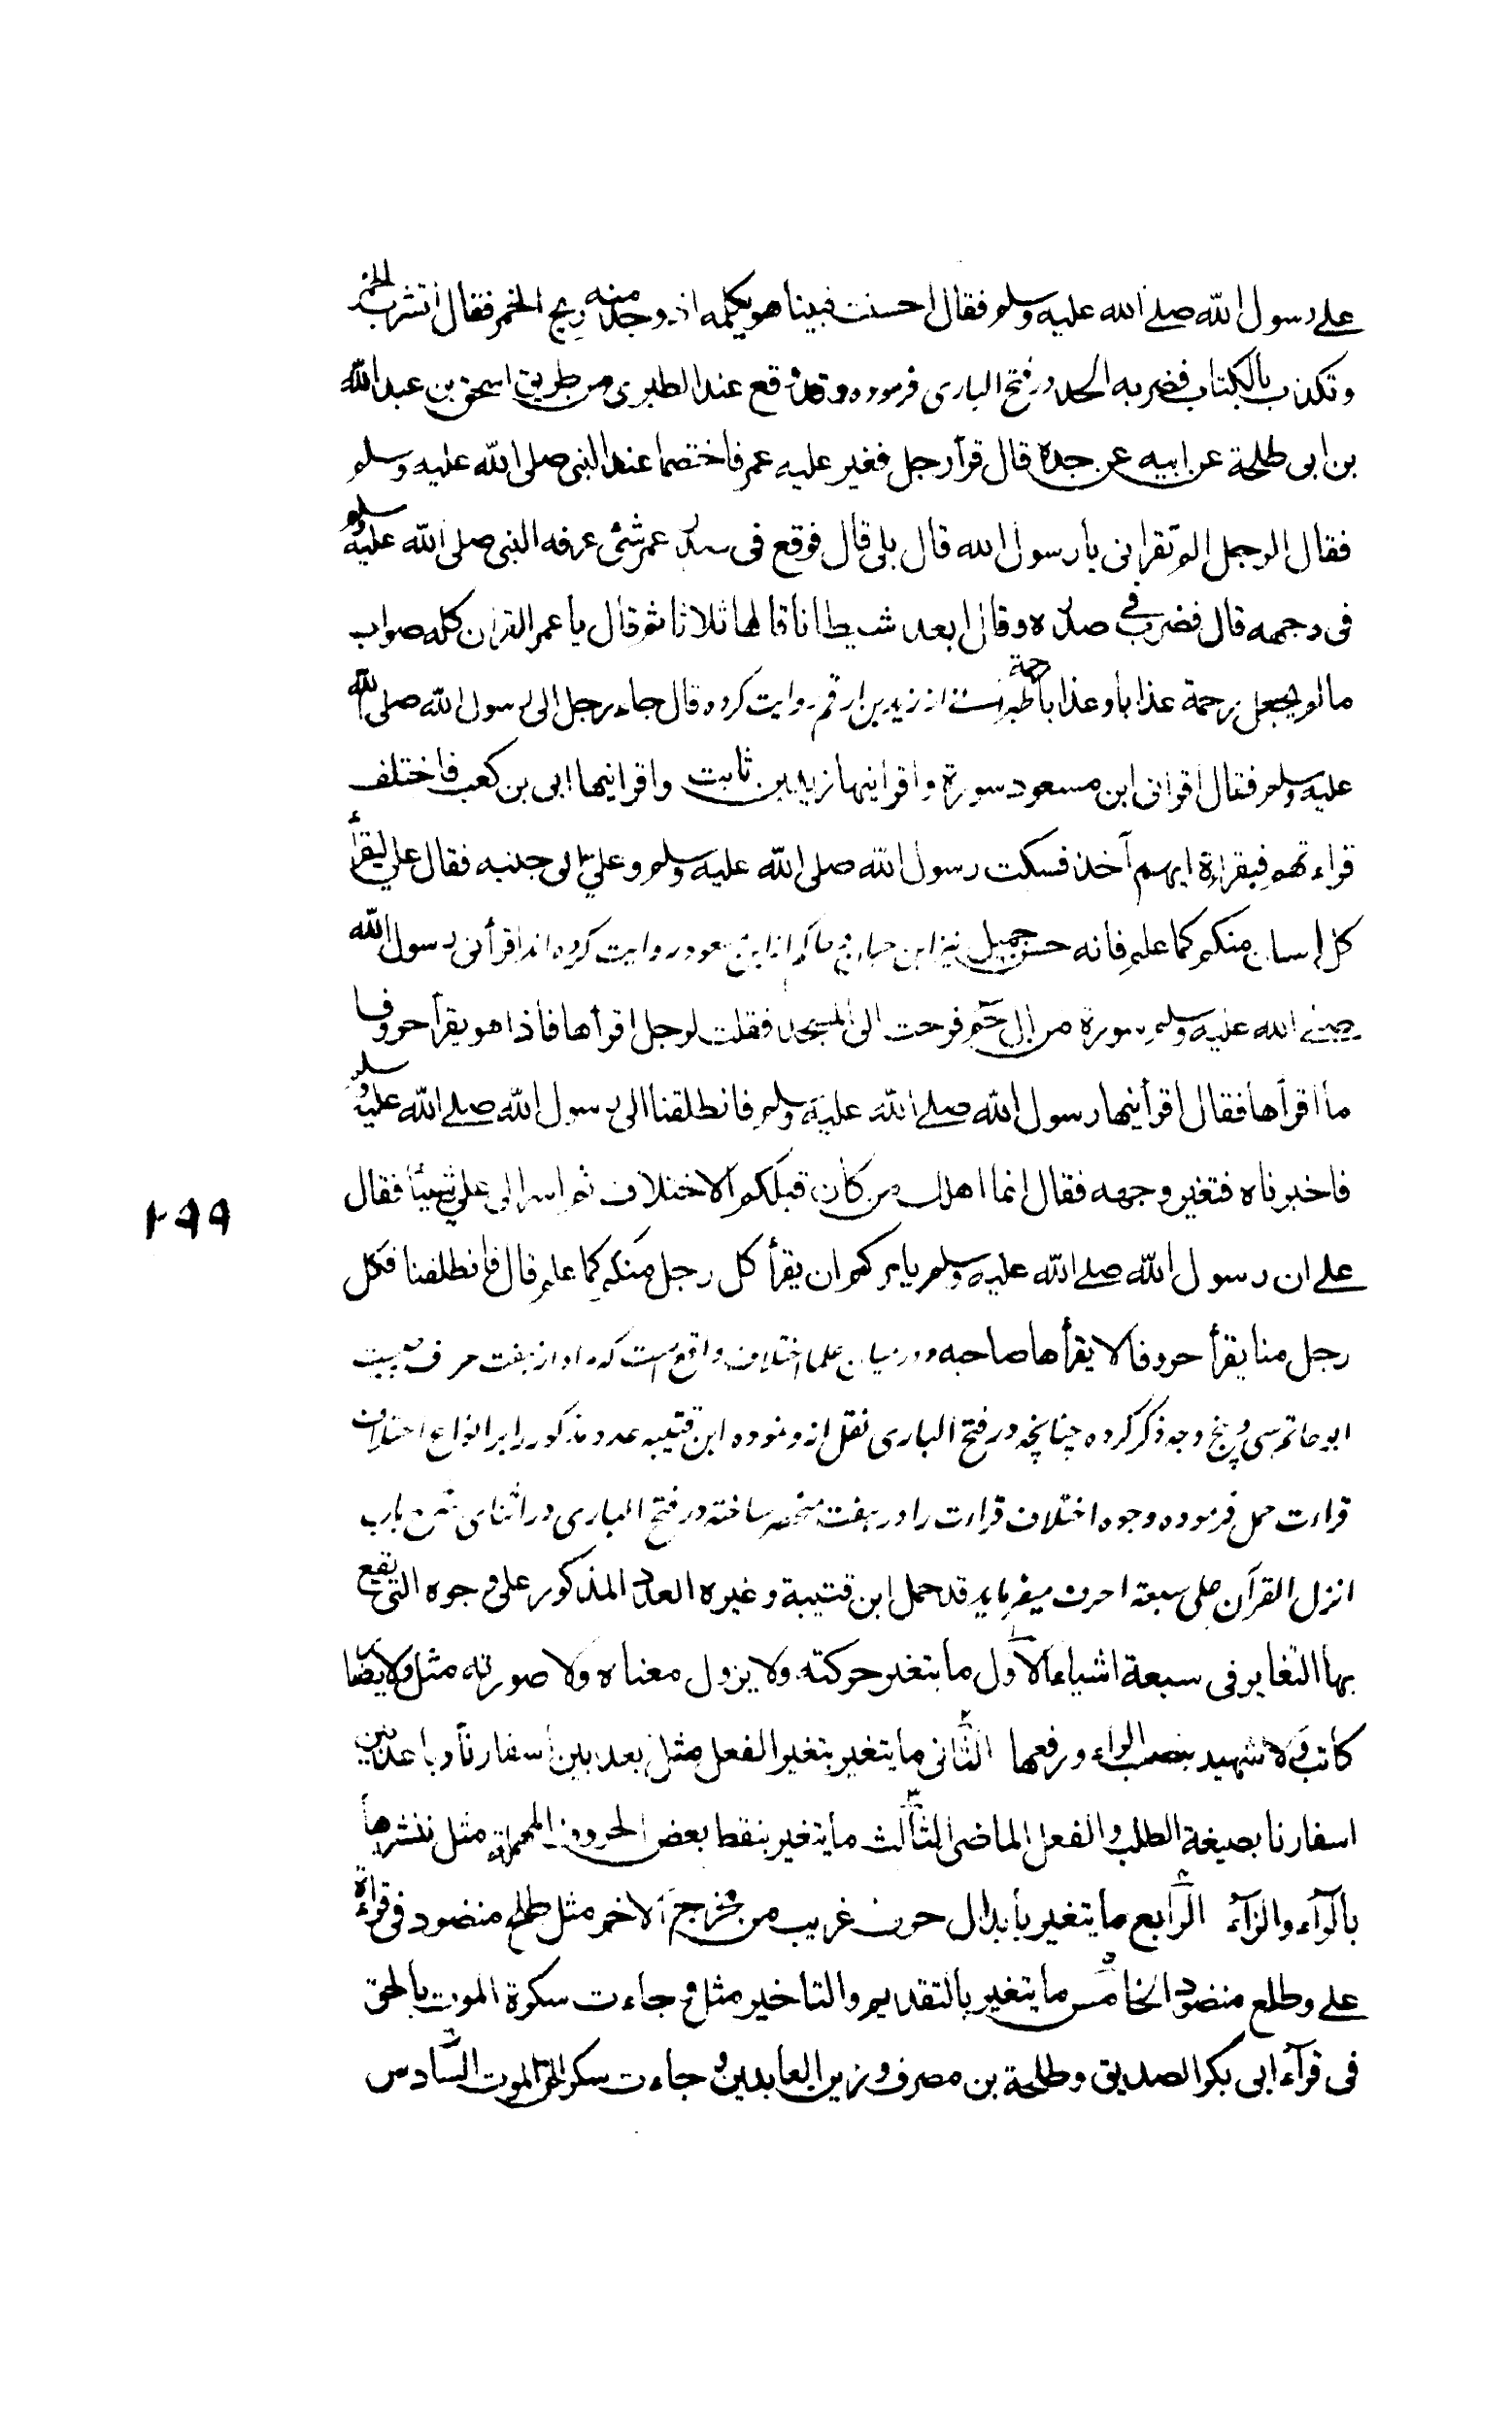 علے رسول الله صلے الله علیه وسلم فقال احسنت فبینا هو یکلمه اذ وجد منه ریح الخمر فقال اتشرب الخمر
وتکذب بالکتاب فضربه الحد در فتح الباری فرموده وقد وقع عند الطبری من طریق اسحق بن عبد الله
بن ابی طلحة عن ابیه عن جده قال قرأ رجل فغیر علیه عمر فاختصما عند النبی صلی الله علیه وسلم
فقال الرجل الم تقرانی یا رسول الله قال بلی قال فوقع فی صدر عمر شئ عرفه النبی صلی الله علیه وسلم
فی وجهه قال فضرب فی صدره وقال ابعد شیطانا قالها ثلاثا ثم قال یا عمر القران کله صواب
ما لم یجعل رحمة عذابا وعذابا رحمة طبرانی از زید بن ارقم روایت کرده قال جاء رجل الی رسول الله صلی الله
علیه وسلم فقال اقرانی ابن مسعود سورة واقرانیها زید بن ثابت واقرانیها ابی بن کعب فاختلف
قراءتهم فبقراءة ایهم آخذ فسکت رسول الله صلی الله علیه وسلم وعلیّ الی جنبه فقال علی لیقرأ
کل انسان منکم کما علم فانه حسن جمیل نیز ابن حبان و حاکم از ابن مسعود روایت کرده اند اقرأنی رسول الله
صلے الله علیه وسلم سورة من ال حم فرحت الی المسجد فقلت لرجل اقرأها فاذا هو یقرأ حروفا
ما اقرأها فقال اقرأنیها رسول الله صلے الله علیه وسلم فانطلقنا الی رسول الله صلے الله علیه وسلم
فاخبرناه فتغیر وجهه فقال انما اهلک من کان قبلکم الاختلاف ثم اسر الی علی شیئاً فقال
علے ان رسول الله صلے الله علیه وسلم یامرکم ان یقرأ کل رجل منکم کما علم قال فانطلقنا فکل
رجل منا یقرأ حروفا لا یقرأها صاحبه و در میان علما اختلاف واقع است که مراد از هفت حرف چیست
ابو حاتم سی و پنج وجه ذکر کرده چنانچه در فتح الباری نقل از و نموده ابن قتیبه عدد مذکور را بر انواع اختلاف
قراءت حمل فرموده وجوه اختلاف قراءت را در هفت منحصر ساخته در فتح الباری در اثنای شرح باب
انزل القرآن علی سبعة احرف میفرماید قد حمل ابن قتیبة وغیره العدد المذکور علی وجوه التی یقع
بها التغایر فی سبعة اشیاء الاول ما یتغیر حرکته ولا یزول معناه ولا صورته مثل ولا یضار
کاتب ولا شهید بنصب الراء ورفعها الثانی ما یتغیر بتغیر الفعل مثل بعد بین اسفارنا وباعد بین
اسفارنا بصیغة الطلب والفعل الماضی الثالث ما یتغیر بنقط بعض الحروف المهملة مثل ننشرها
بالرآء والزآء الرابع ما یتغیر بابدال حرف غریب من مخرج الاخر مثل طلح منضود فی قراءة
علے وطلع منضود الخامس ما یتغیر بالتقدیم والتاخیر مثل وجاءت سکرة الموت بالحق
فی قرآء ابی بکر الصدیق وطلحة بن مصرف وزین العابدین وجاءت سکرة الحق بالموت السادس
۲۹۹